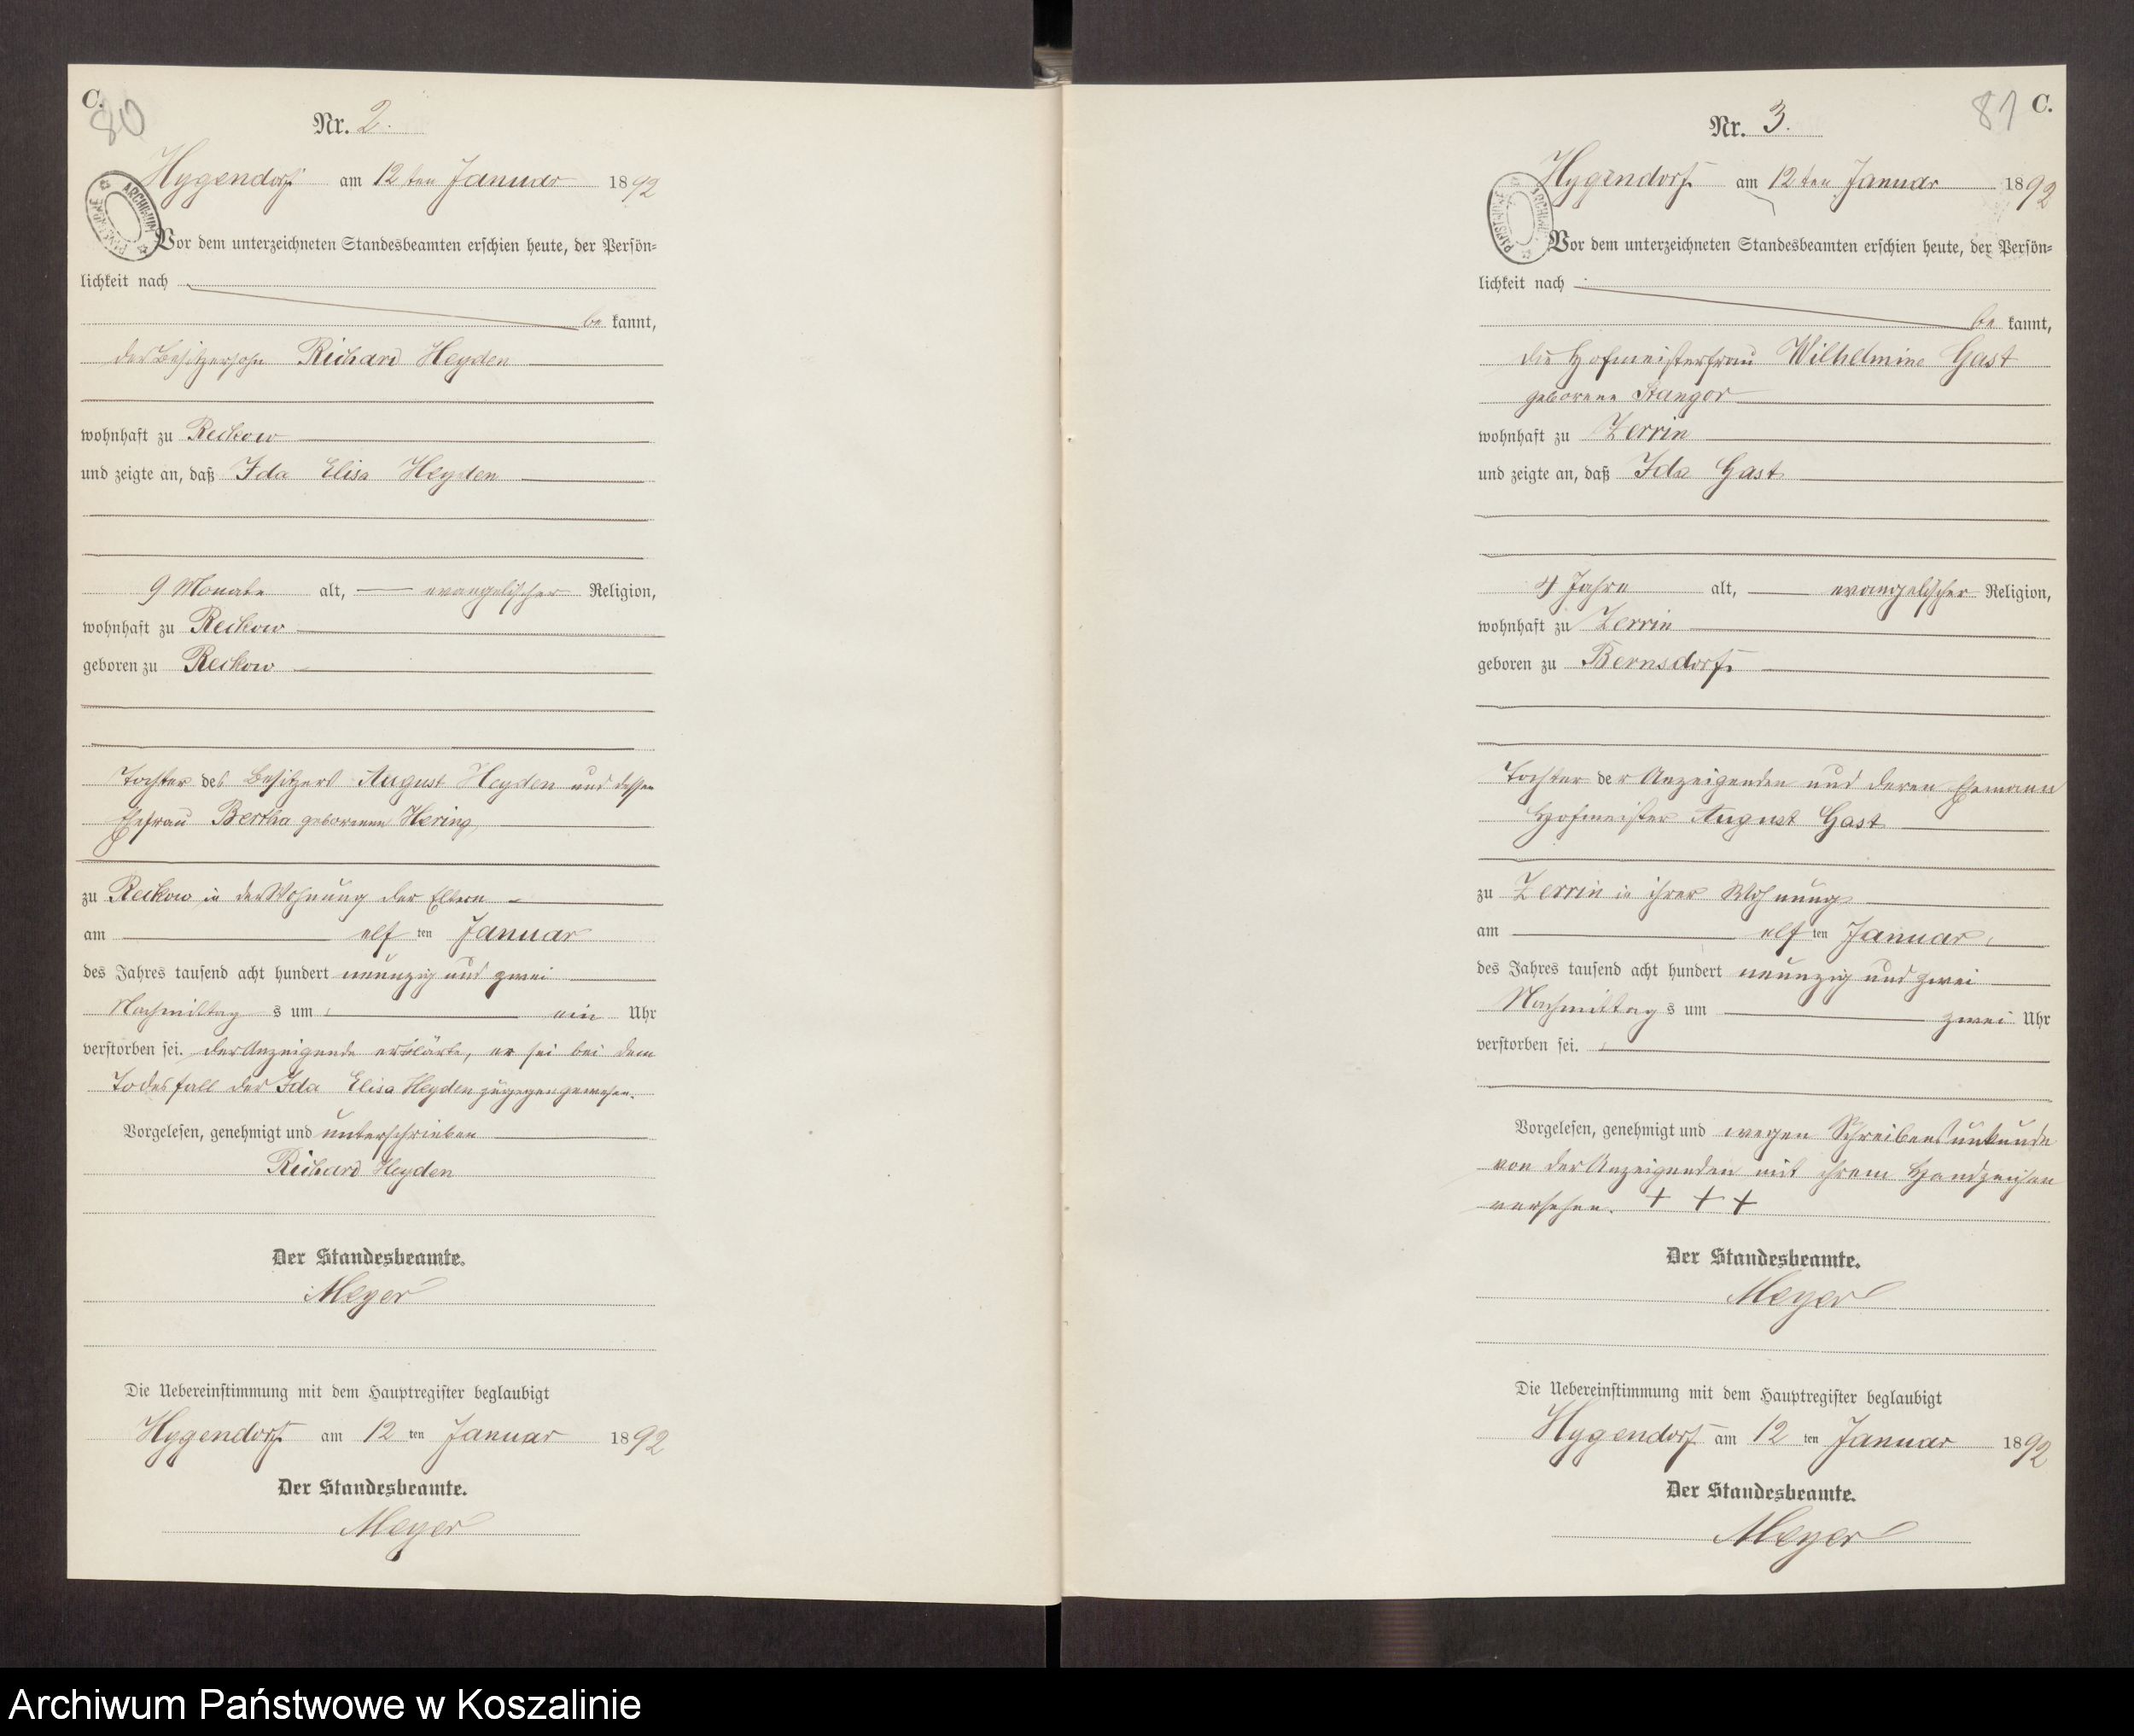 C.
80
Nr. 2.
Hygendorf am 12ten Januar 1892
Vor dem unterzeichneten Standesbeamten erschien heute, der Persön=
lichkeit nach
be kannt,
der Besitzersohn Richard Heyden
wohnhaft zu Reckow
und zeigte an, daß Ida Elisa Heyden
9 Monate alt, evangelischer Religion,
wohnhaft zu Reckow
geboren zu Reckow
Tochter des Besitzers August Heyden und dessen
Ehefrau Bertha geborenen Hering
zu Reckow in der Wohnung der Eltern
am elf ten Januar
des Jahres tausend acht hundert neunzig und zwei
Nachmittag s um ein Uhr
verstorben sei. Der Anzeigende erklärte, er sei bei dem
Todesfall der Ida Elisa Heyden zugegen gewesen.
Vorgelesen, genehmigt und unterschrieben
Richard Heyden
Der Standesbeamte.
Meyer
Die Uebereinstimmung mit dem Hauptregister beglaubigt
Hygendorf am 12 ten Januar 1892
Der Standesbeamte.
Meyer
81 C.
Nr. 3.
Hygendorf am 12ten Januar 1892
Vor dem unterzeichneten Standesbeamten erschien heute, der Persön=
lichkeit nach
be kannt,
die Hofmeisterfrau Wilhelmine Gast
geborene Stangor
wohnhaft zu Zerrin
und zeigte an, daß Ida Gast
4 Jahre alt, evangelischer Religion,
wohnhaft zu Zerrin
geboren zu Bernsdorf
Tochter der Anzeigenden und deren Ehemann
Hofmeister August Gast
zu Zerrin in ihrer Wohnung
am elf ten Januar
des Jahres tausend acht hundert neunzig und zwei
Nachmittag s um zwei Uhr
verstorben sei.
Vorgelesen, genehmigt und wegen Schreibensunkunde
von der Anzeigenden mit ihrem Handzeichen
versehen. + + +
Der Standesbeamte.
Meyer
Die Uebereinstimmung mit dem Hauptregister beglaubigt
Hygendorf am 12 ten Januar 1892
Der Standesbeamte.
Meyer
Archiwum Państwowe w Koszalinie